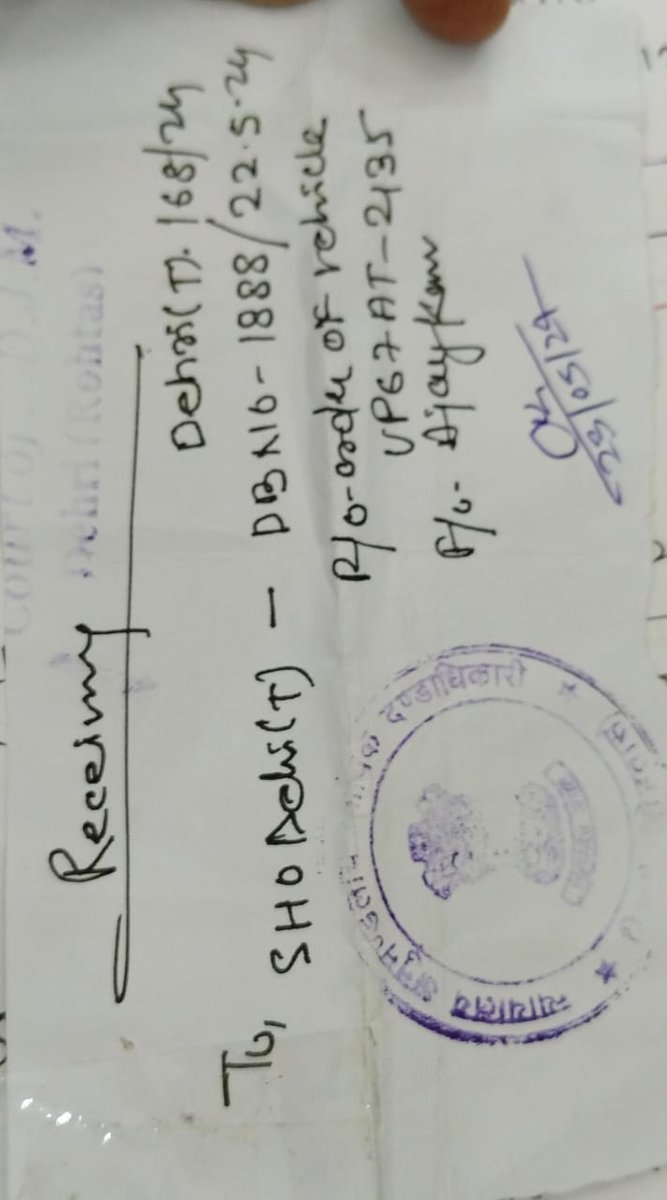 Court of
D.J.M.
Dehri (Rohtas)
Receiving
Dehri(T). 168/24
To,
SHO Dehri(T) - DBN16-1888/22.5.24
R/o-order of vehicle
UP67AT-2435
P/o- Ajay Kumar
23/05/24
न्यायालय अनुमण्डलीय न्यायिक दण्डाधिकारी